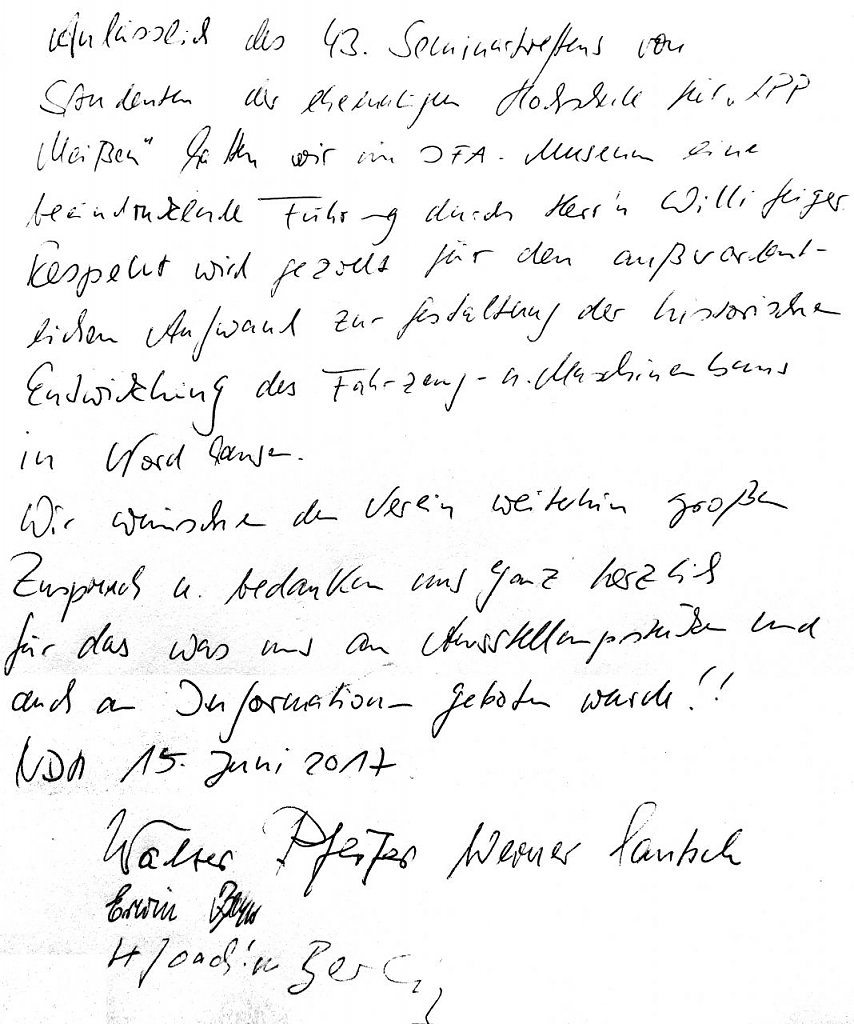 Anlässlich des 43. Seminartreffens von
Studenten der ehemaligen Hochschule für LPP
Meißen" hatten wir im IFA-Museum eine
beeindruckende Führung durch Herrn Willi
Respekt wird gezollt für den außerordent-
lichen Aufwand zur Gestaltung der historischen
Entwicklung des Fahrzeug- u. Maschinenbaus
in Nordhausen.
Wir wünschen dem Verein weiterhin großen
Zuspruch u. bedanken uns ganz herzlich
für das was uns an Ausstellungsstücken und
auch an Information geboten wurde!!
NDH 15. Juni 2017
Walter Pfeifer Werner
Erwin
H Joachim